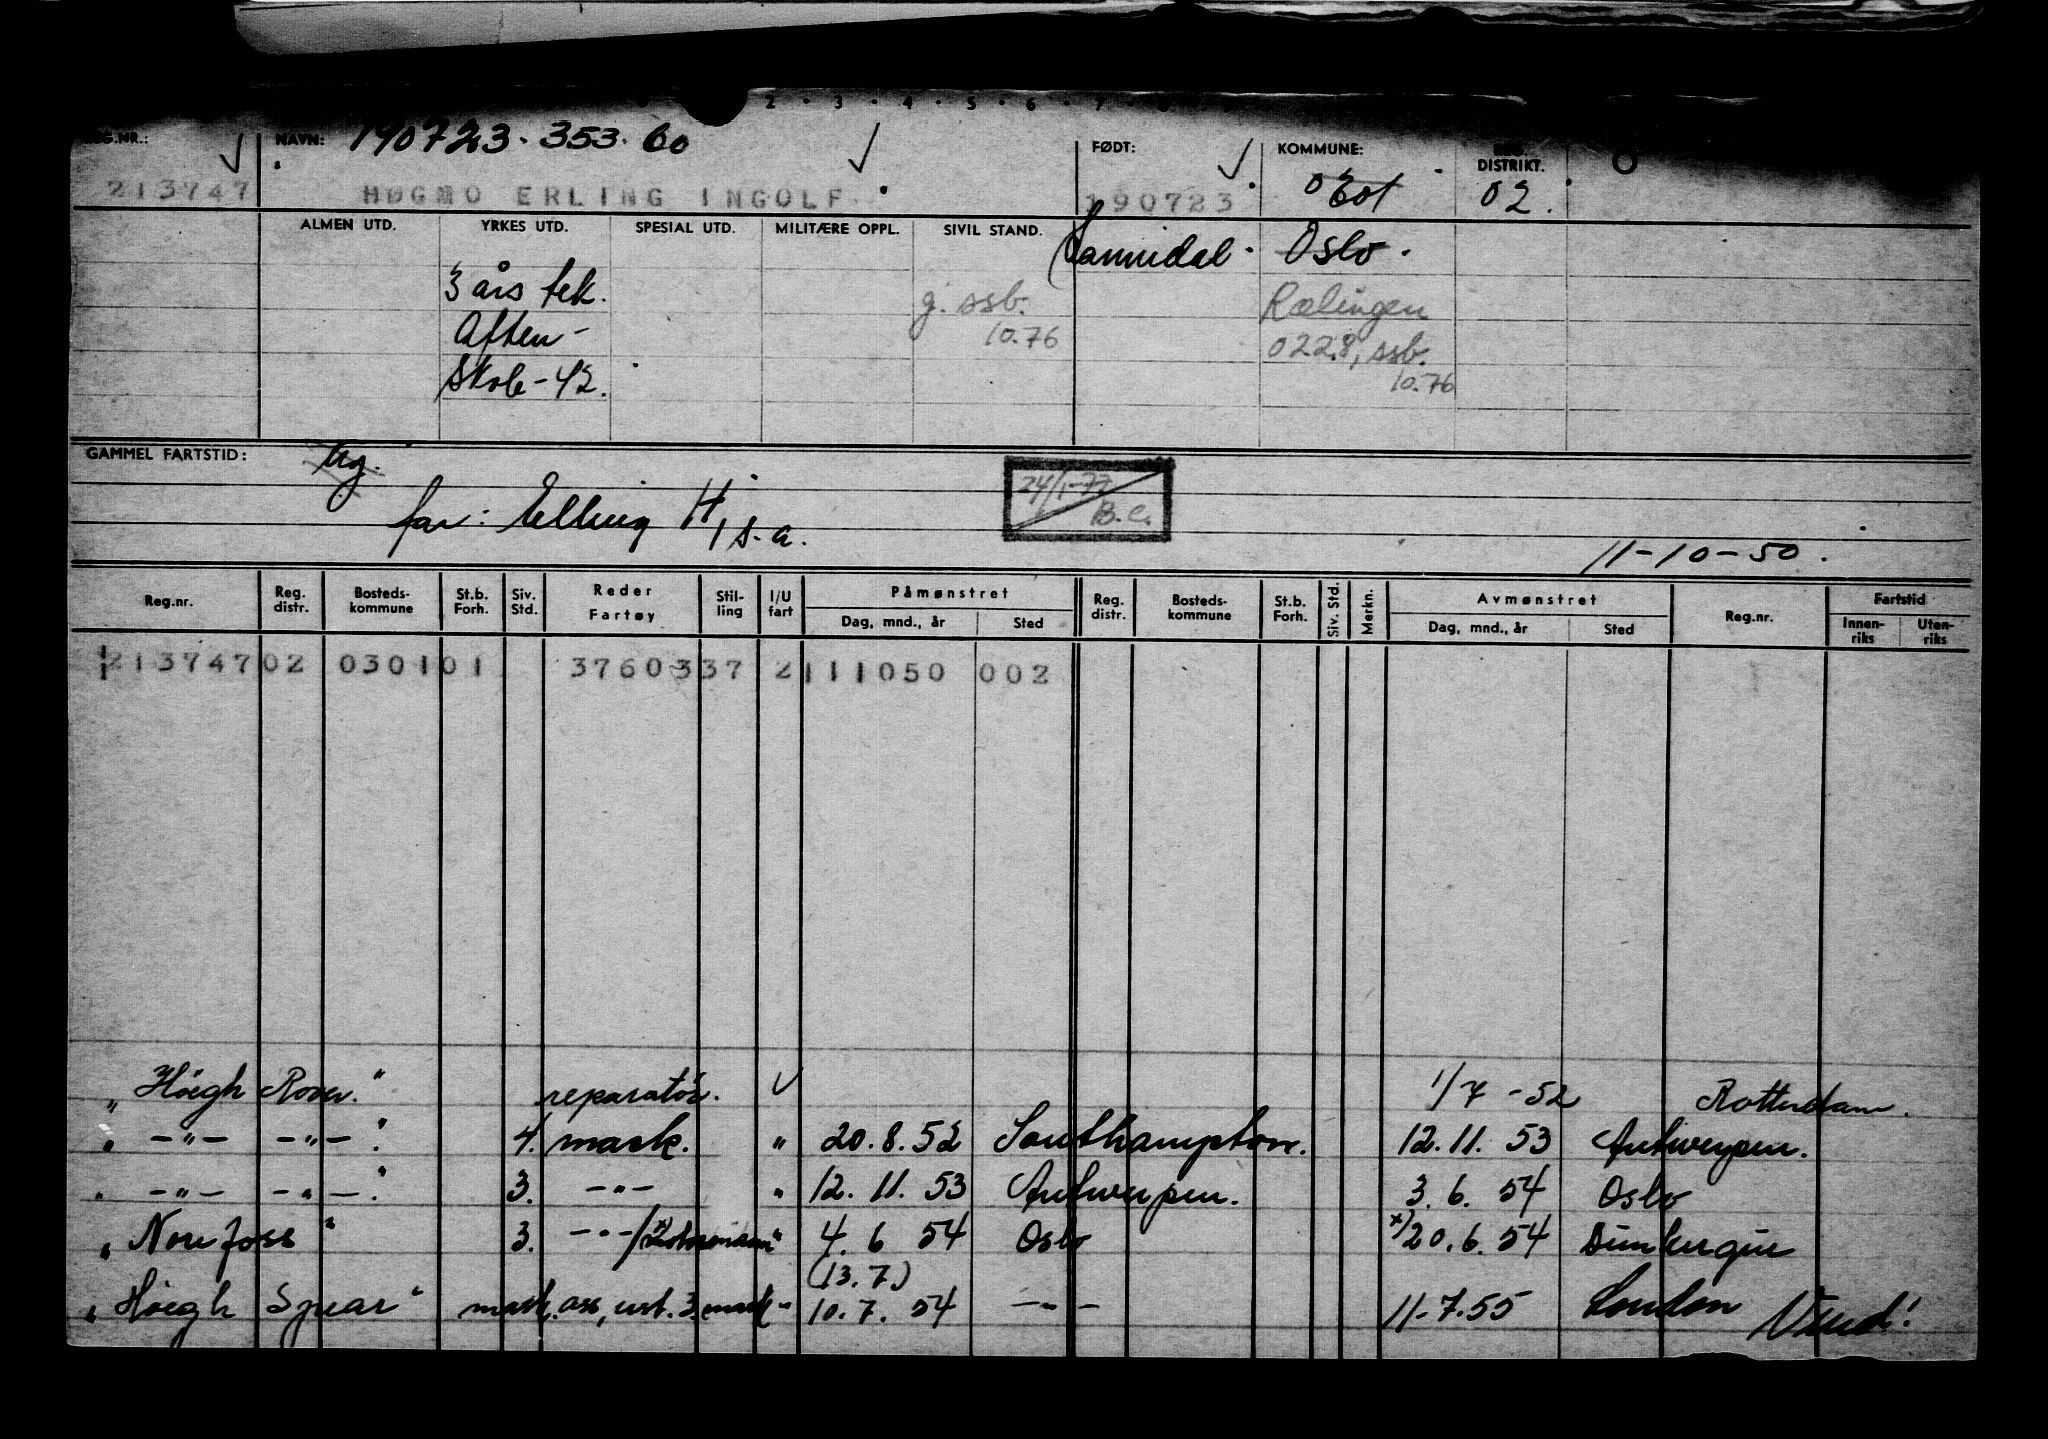 2 · 3 · 4 · 5 · 6 · 7
REG.NR.: NAVN: 190723.353.60 FØDT: KOMMUNE: REG. DISTRIKT.
213747 HØGMO ERLING INGOLF. 190723 02.
ALMEN UTD. YRKES UTD. SPESIAL UTD. MILITÆRE OPPL. SIVIL STAND. Sannidal. Oslo.
3 års tek. g. ssb. Rælingen
Aften- 10.76 0228, ssb.
Skole-42. 10.76
GAMMEL FARTSTID:
24/1-77
B.C.
far: Elling H, s.a.
11-10-50.
Reg.nr. Reg. distr. Bosteds-kommune St.b. Forh. Siv. Std. Reder Fartøy Stil-ling I/U fart Påmønstret Reg. distr. Bosteds-kommune St.b. Forh. Siv. Std. Merkn. Avmønstret Reg.nr. Fartstid
Dag, mnd., år Sted Dag, mnd., år Sted Innen-riks Uten-riks
213747 02 0301 01 37603 37 2 111050 002
„Höegh Rover." reparatör. 1/7-52 Rotterdam.
" -"- -"-." 4. mask. " 20.8.52 Southampton. 12.11.53 Antwerpen.
" -"- -"-." 3. -"- " 12.11.53 Antwerpen. 3.6.54 Oslo
„Norefoss" 3. -"-/ " 4.6 54 Oslo x) 20.6.54 Dunkerque
(13.7.)
„Höegh Spear" mask. ass, ust. 3. mask - 10.7.54 -"- 11.7.55 London